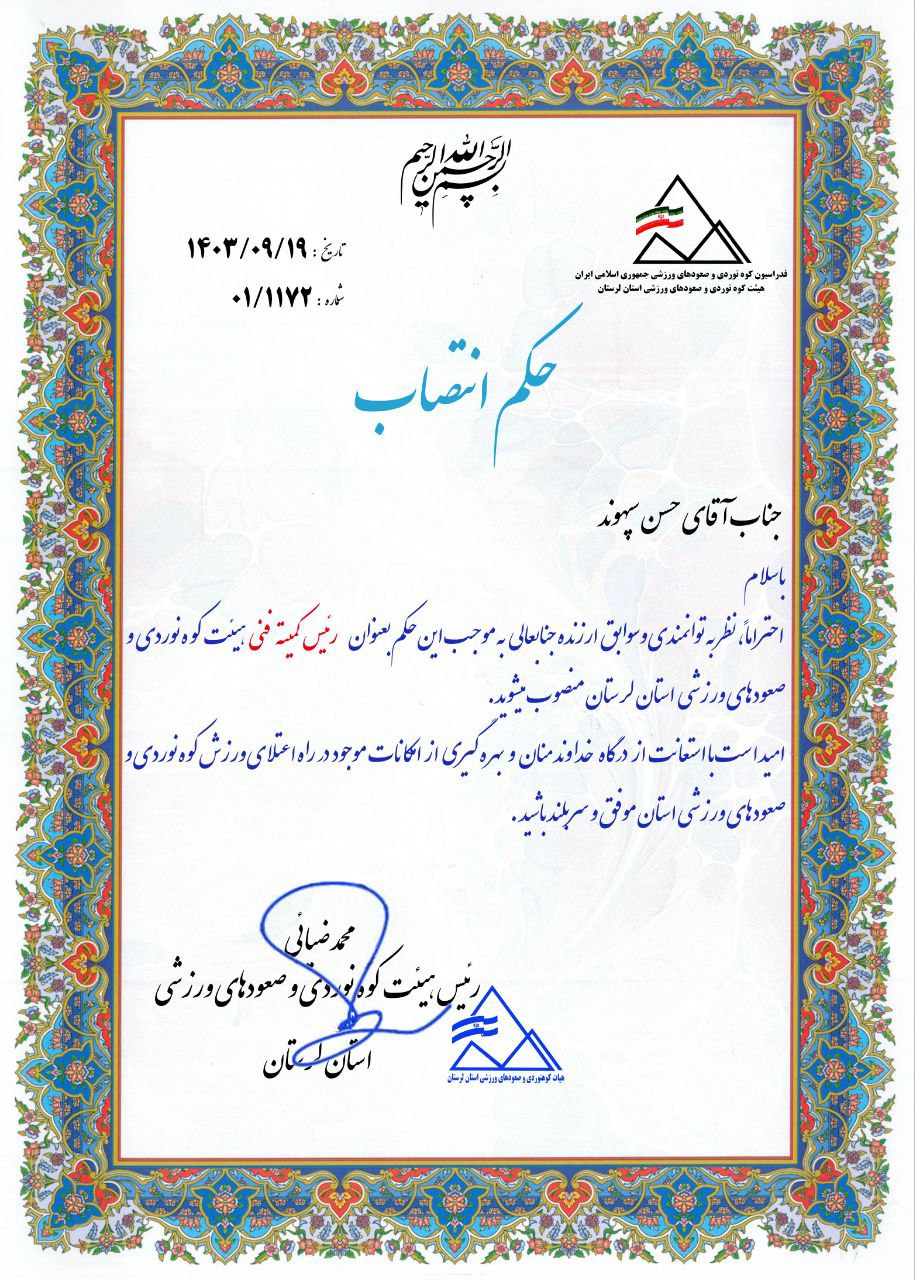 بسم الله الرحمن الرحیم
فدراسیون کوه نوردی و صعودهای ورزشی جمهوری اسلامی ایران
هیئت کوه نوردی و صعودهای ورزشی استان لرستان
تاریخ : ۱۴۰۳/۰۹/۱۹
شماره : ۰۱/۱۱۷۲
حکم انتصاب
جناب آقای حسن سپهوند
باسلام
احتراماً، نظر به توانمندی و سوابق ارزنده جنابعالی به موجب این حکم بعنوان رئیس کمیته فنی هیئت کوه نوردی و
صعودهای ورزشی استان لرستان منصوب میشوید.
امید است با استعانت از درگاه خداوند منان و بهره گیری از امکانات موجود در راه اعتلای ورزش کوه نوردی و
صعودهای ورزشی استان موفق و سربلند باشید .
محمد ضیائی
رئیس هیئت کوه نوردی و صعودهای ورزشی
استان لرستان
هیات کوهنوردی و صعودهای ورزشی استان لرستان